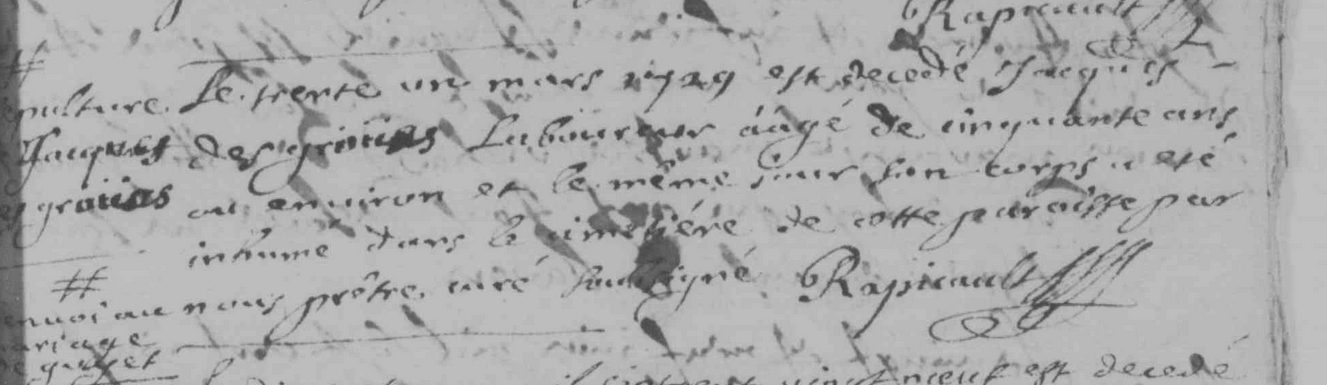 Rapicault
#
Sepulture Le trente un mars 1729 est decedé Jacques
Jacques desgrouies Laboureur âagé de cinquante ans
desgrouies ou environ et le même jour son corps a eté
inhumé dans le cimetiére de cette paroisse par
#
nous prêtre curé soussigné Rapicault
est decedé